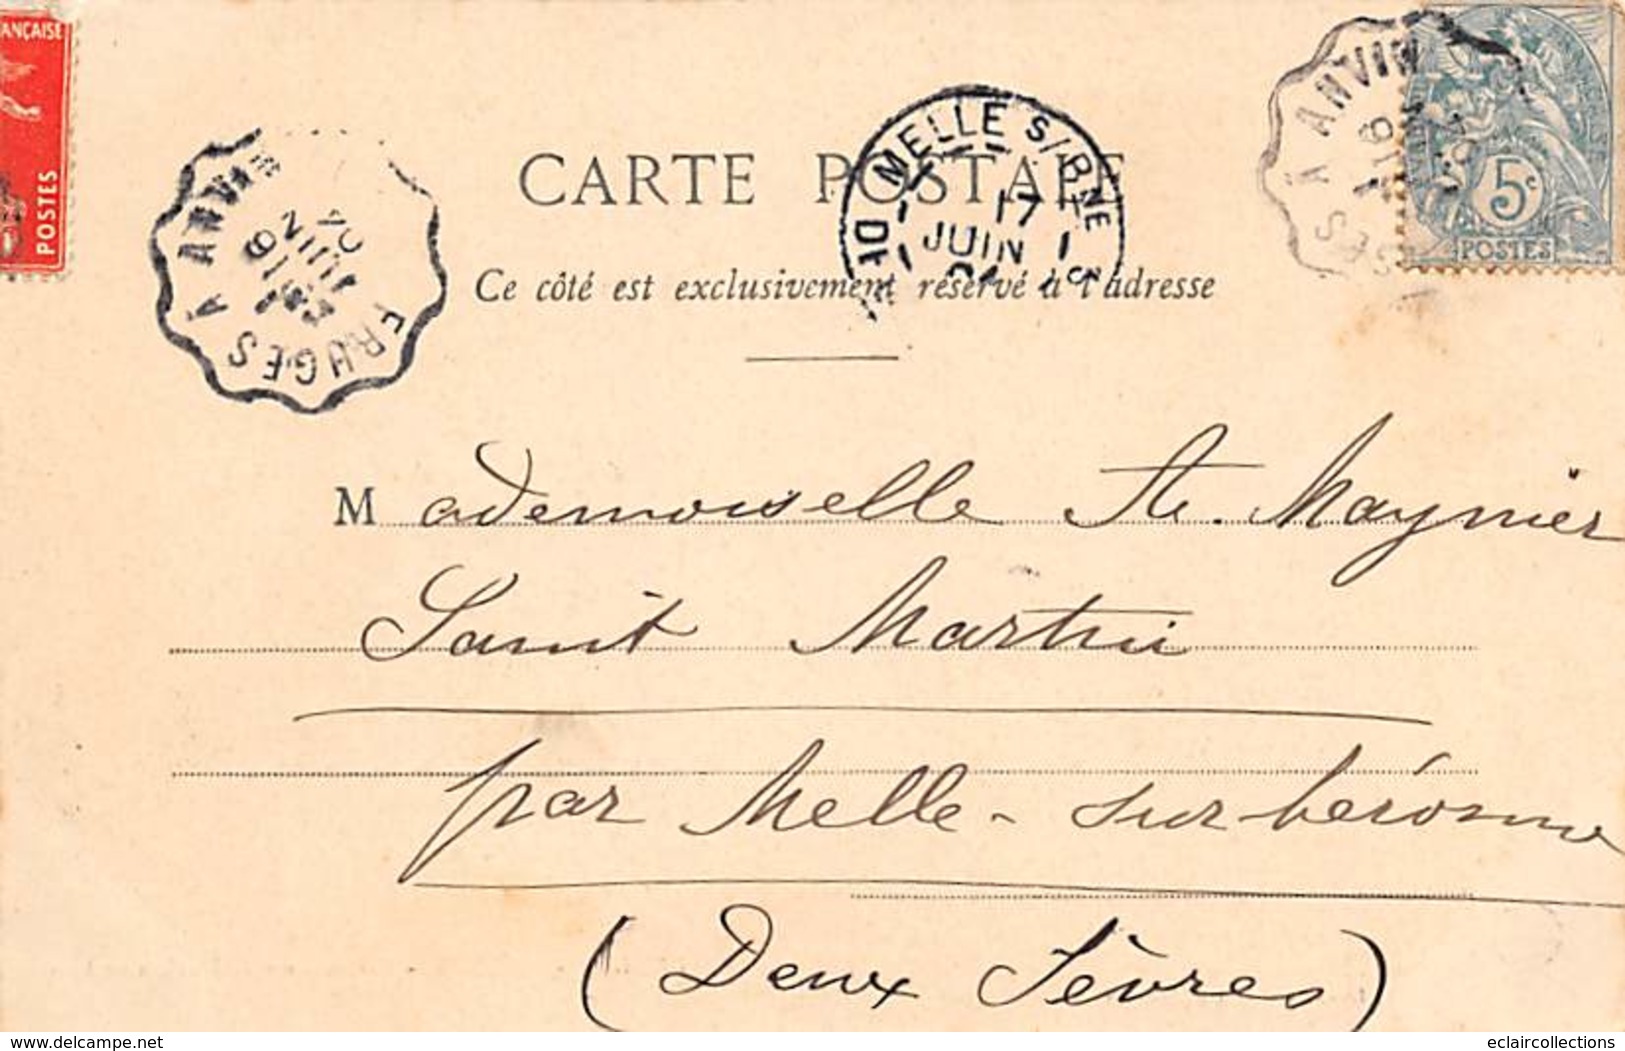 ANÇAISE
POSTES
FRUGES À ANVIN
16
JUIN
04
MELLE S/BNE
17
JUIN
À ANVIN
16
5c
POSTES
CARTE POSTALE
Ce côté est exclusivement réservé à l'adresse
Mademoiselle Maynier
Saint Martin
par Melle-sur béronne
(Deux Sèvres)
delcampe.net
eclaircollections